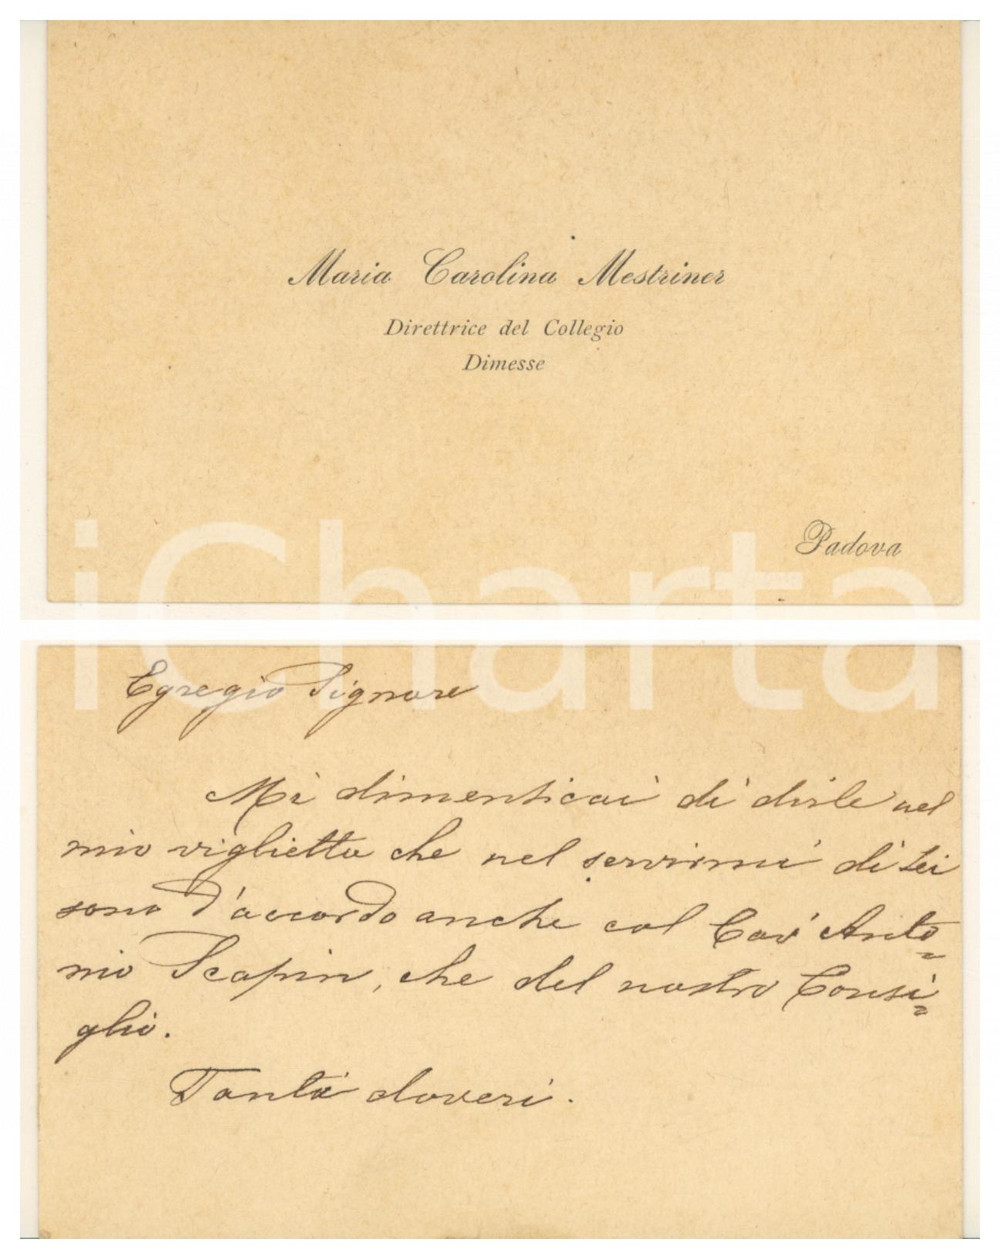 Maria Carolina Mestriner
Direttrice del Collegio
Dimesse
Padova
iCharta
Egregio Signore
Mi dimenticai di dirle nel
mio viglietto che nel servirmi di Lei
sono d'accordo anche col Cav Anto=
nio Scapin, che del nostro Consi=
glio.
Tanti doveri.